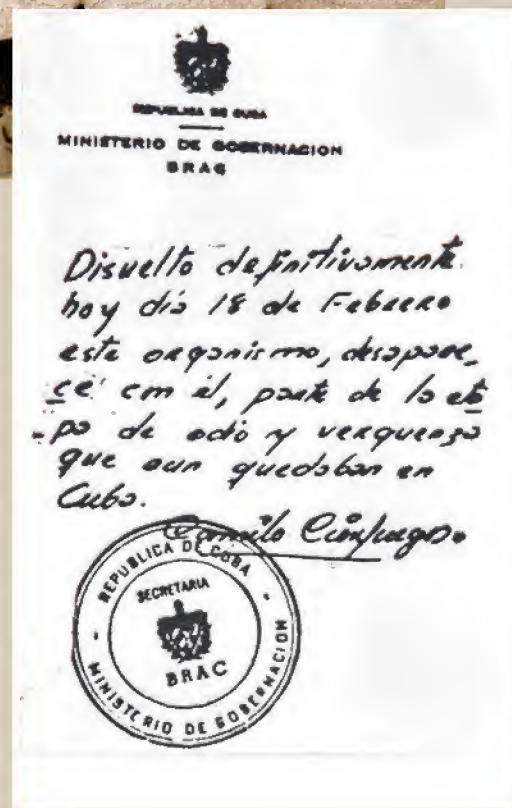 REPUBLICA DE CUBA
MINISTERIO DE GOBERNACION
BRAC
Disuelto definitivamente
hoy día 18 de Febrero
este organismo, desapare,
ce con el, parte de la eta
-pa de odio y verguenza
que aun quedaban en
Cuba.
Camilo Cienfuegos
REPUBLICA DE CUBA
SECRETARIA
BRAC
MINISTERIO DE GOBERNACION